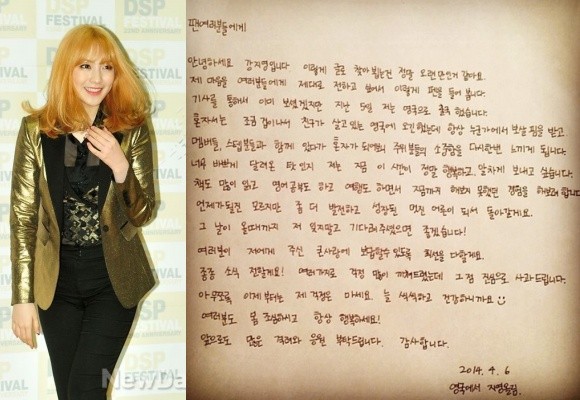 DSP
FESTIVAL
22ND ANNIVERSARY
DSP
FESTIVAL
DSP
FESTIVAL
NewDa
팬여러분들에게
안녕하세요 강지영입니다. 이렇게 글로 찾아뵙는건 정말 오랜만인거 같아요.
제 마음을 여러분들에게 제대로 전하고 싶어서 이렇게 펜을 들어 봅니다.
기사를 통해서 이미 보셨겠지만 지난 5일 저는 영국으로 출국 했습니다.
혼자서는 조금 겁이나서 친구가 살고있는 영국에 오긴했는데 항상 누군가에서 보살핌을 받고
멤버들, 스탭분들과 함께 있다가 혼자가 되어보니 주위분들의 소중함을 다시한번 느끼게 됩니다.
너무 바쁘게 달려온 탓인지 저는 지금 이 시간이 정말 행복하고 알차게 보내고 있습니다.
책도 많이 읽고 영어공부도 하고 여행도 하면서 지금까지 해보지 못했던 경험을 해보려 합니다.
언제가될진 모르지만 좀 더 발전하고 성장된 멋진 어른이 되서 돌아갈게요.
그 날이 올때까지 저 잊지말고 기다려주셨으면 좋겠습니다!
여러분이 저에게 주신 큰사랑에 보답할수 있도록 최선을 다할게요.
종종 소식 전할게요! 여러가지로 걱정 많이 끼쳐드렸는데 그점 진심으로 사과드립니다.
아무쪼록 이제부터는 제 걱정은 마세요. 늘 씩씩하고 건강하니까요
여러분도 몸 조심하시고 항상 행복하세요!
앞으로도 많은 격려와 응원 부탁드립니다. 감사합니다.
2014. 4. 6
영국에서 지영올림.